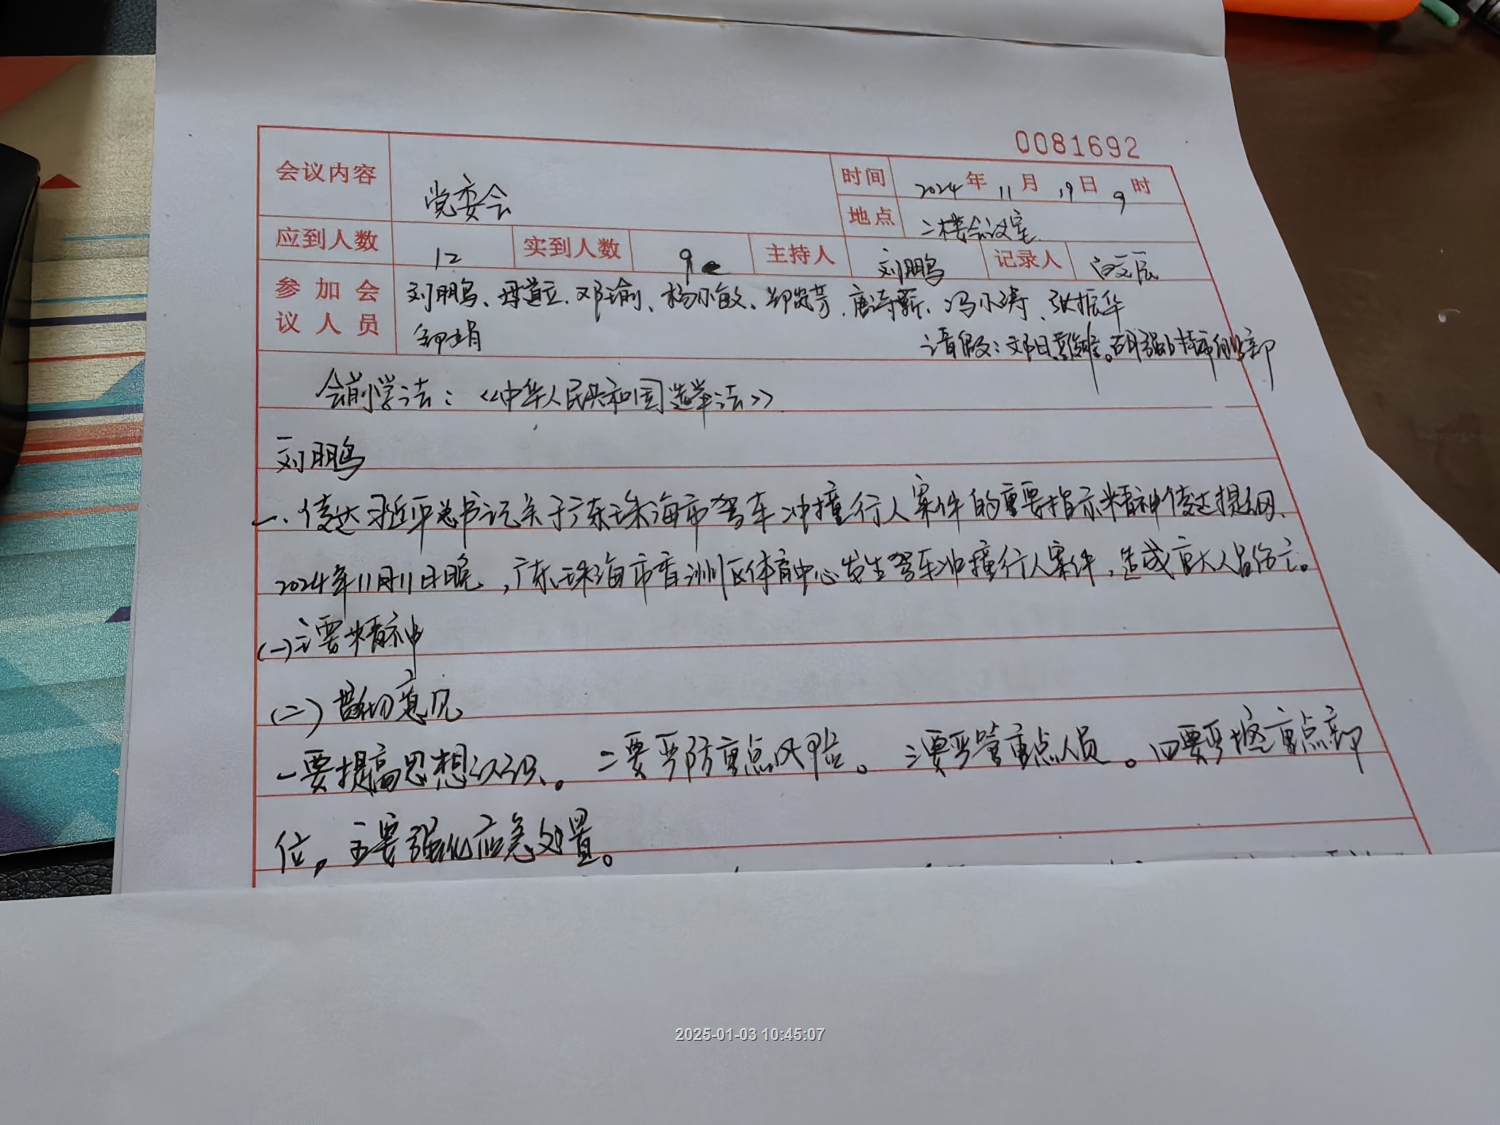 0081692
会议内容 党委会 时间 2024年11月19日9时
地点 二楼会议室
应到人数 12 实到人数 9 主持人 刘鹏 记录人
参加会议人员 刘鹏、邓瑜、杨小敏、冯小涛、张振华
请假:
会前学法:《中华人民共和国选举法》
刘鹏
一、传达习近平总书记关于广东珠海市驾车冲撞行人案件的重要指示精神传达提纲、
2024年11月11日晚,广东珠海市香洲区体育中心发生驾车冲撞行人案件,造成重大人员伤亡。
(一)主要精神
(二)贯彻意见
一要提高思想认识。二要严防重点风险。三要严管重点人员。四要严控重点部
位,五要强化应急处置。
2025-01-03 10:45:07